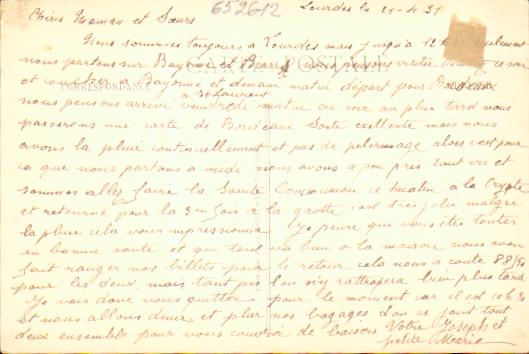 652612
Lourdes le 21-4-31
Chers Maman et Sœurs
Nous sommes toujours a Lourdes mais jusqu'a 12 h seulement
nous partons sur Bayonne et nous pensons visiter ce soir
CARTE POSTALE
et coucher a Bayonne et demain matin départ pour Bordeaux
CORRESPONDANCE
nous pensons arrivé vendredi matin ou soir au plus tard nous
passerons une carte de Bordeaux Sante exellente mais nous
avons la pluie continuellement et pas de pelerinage alors c'est pour
ca que nous partons a midi nous avons a peu pres tout vu et
sommes allés faire la Sainte Communion ce matin a la Crypte
et retourné pour la 3 em fois a la grotte c'est tres jolie malgré
la pluie cela vous impressionne Je pense que vous êtes toutes
en bonne santé et que tout va bien a la maison nous avons
fait ranger nos billets pour le retour cela nous a couté 88
pour les deux, mais tant pis l'on s'y rattrapera bien plus tard
Je vais donc vous quitter pour le moment car il est 10 h
et nous allons diner et plier nos bagages L'on se joint tout
deux ensemble pour vous couvrir de baisers Votre Joseph et
petite Marie